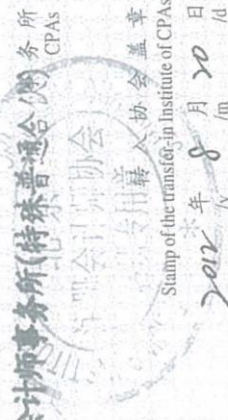 会计师事务所(特殊普通合伙)
事务所
CPAs
转入协会盖章
Stamp of the transfer-in Institute of CPAs
2012 年 8 月 20 日
/y /m /d